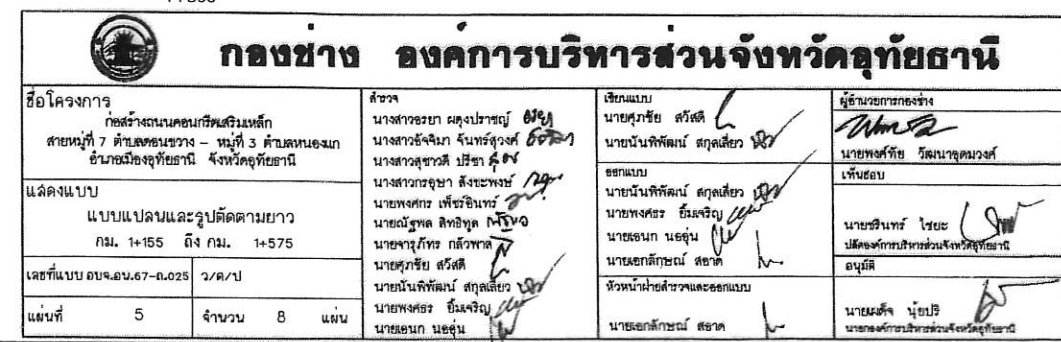 กองช่าง องค์การบริหารส่วนจังหวัดอุทัยธานี
ชื่อโครงการ
ก่อสร้างถนนคอนกรีตเสริมเหล็ก
สายหมู่ที่ 7 ตำบลดอนขวาง – หมู่ที่ 3 ตำบลหนองแก
อำเภอเมืองอุทัยธานี จังหวัดอุทัยธานี
แสดงแบบ
แบบแปลนและรูปตัดตามยาว
กม. 1+155 ถึง กม. 1+575
เลขที่แบบ อบจ.อน.67-ถ.025 ว/ด/ป
แผ่นที่ 5 จำนวน 8 แผ่น
สำรวจ
นางสาวอรยา ผดุงปราชญ์
นางสาวอัจจิมา จันทร์สุวงศ์
นางสาวสุชาวดี ปรีชา
นางสาวกรอุษา สังขะพงษ์
นายพงศกร เพ็ชร์อินทร์
นายณัฐพล สิทธิทูล
นายจารุภัทร กล้วพาล
นายศุภชัย สวัสดิ์
นายนันพิพัฒน์ สกุลเลี่ยว
นายพงศธร ยิ้มเจริญ
นายเอนก นออุ่น
เขียนแบบ
นายศุภชัย สวัสดิ์
นายนันพิพัฒน์ สกุลเลี่ยว
ออกแบบ
นายนันพิพัฒน์ สกุลเลี่ยว
นายพงศธร ยิ้มเจริญ
นายเอนก นออุ่น
นายเอกลักษณ์ สอาด
หัวหน้าฝ่ายสำรวจและออกแบบ
นายเอกลักษณ์ สอาด
ผู้อำนวยการกองช่าง
นายพงศ์ทัย วัฒนาอุดมวงศ์
เห็นชอบ
นายชรินทร์ ไชยะ
ปลัดองค์การบริหารส่วนจังหวัดอุทัยธานี
อนุมัติ
นายเผด็จ นุ้ยปรี
นายกองค์การบริหารส่วนจังหวัดอุทัยธานี